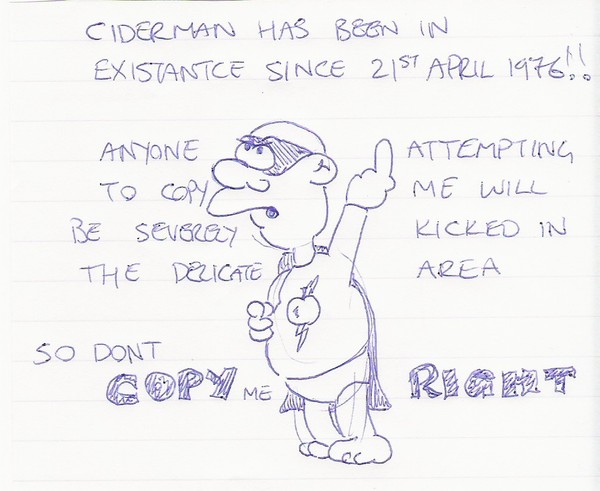 CIDERMAN HAS BEEN IN
EXISTANTCE SINCE 21ST APRIL 1976!!
ANYONE ATTEMPTING
TO COPY ME WILL
BE SEVERELY KICKED IN
THE DELICATE AREA
SO DONT
COPY ME RIGHT